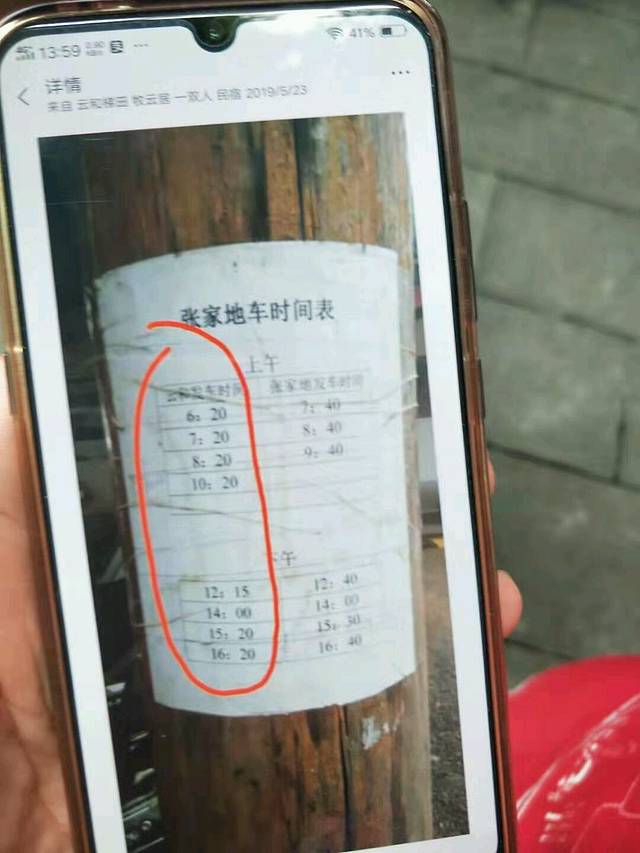 13:59
41%
详情
来自 云和梯田 牧云居 一双人 民宿 2019/5/23
张家地车时间表
上午
云和发车时间 张家地发车时间
6：20 7：40
7：20 8：40
8：20 9：40
10：20
下午
12：15 12：40
14：00 14：00
15：20 15：30
16：20 16：40